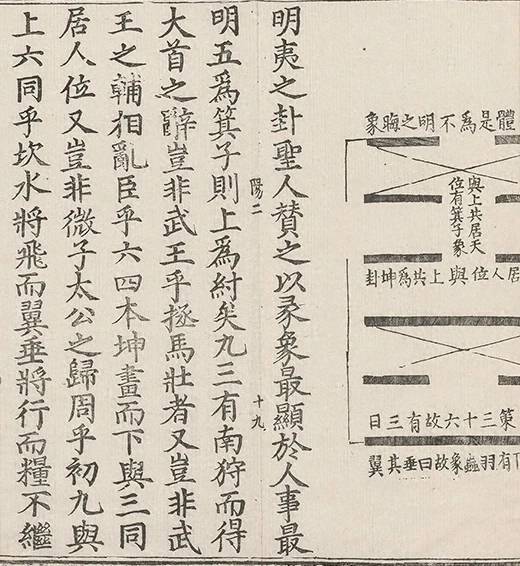 體是為不明之晦象
與上共居天
位有箕子象
居人位與上共為坤卦
策三十六故有三日
有羽蟲象故曰垂其翼
明夷之卦聖人賛之以彖象最顯於人事最
陽二
十九
明五爲箕子則上爲紂矣九三有南狩而得
大首之辭豈非武王乎拯馬壯者又豈非武
王之輔相亂臣乎六四本坤畫而下與三同
居人位又豈非微子太公之歸周乎初九與
上六同乎坎水將飛而翼垂將行而糧不繼